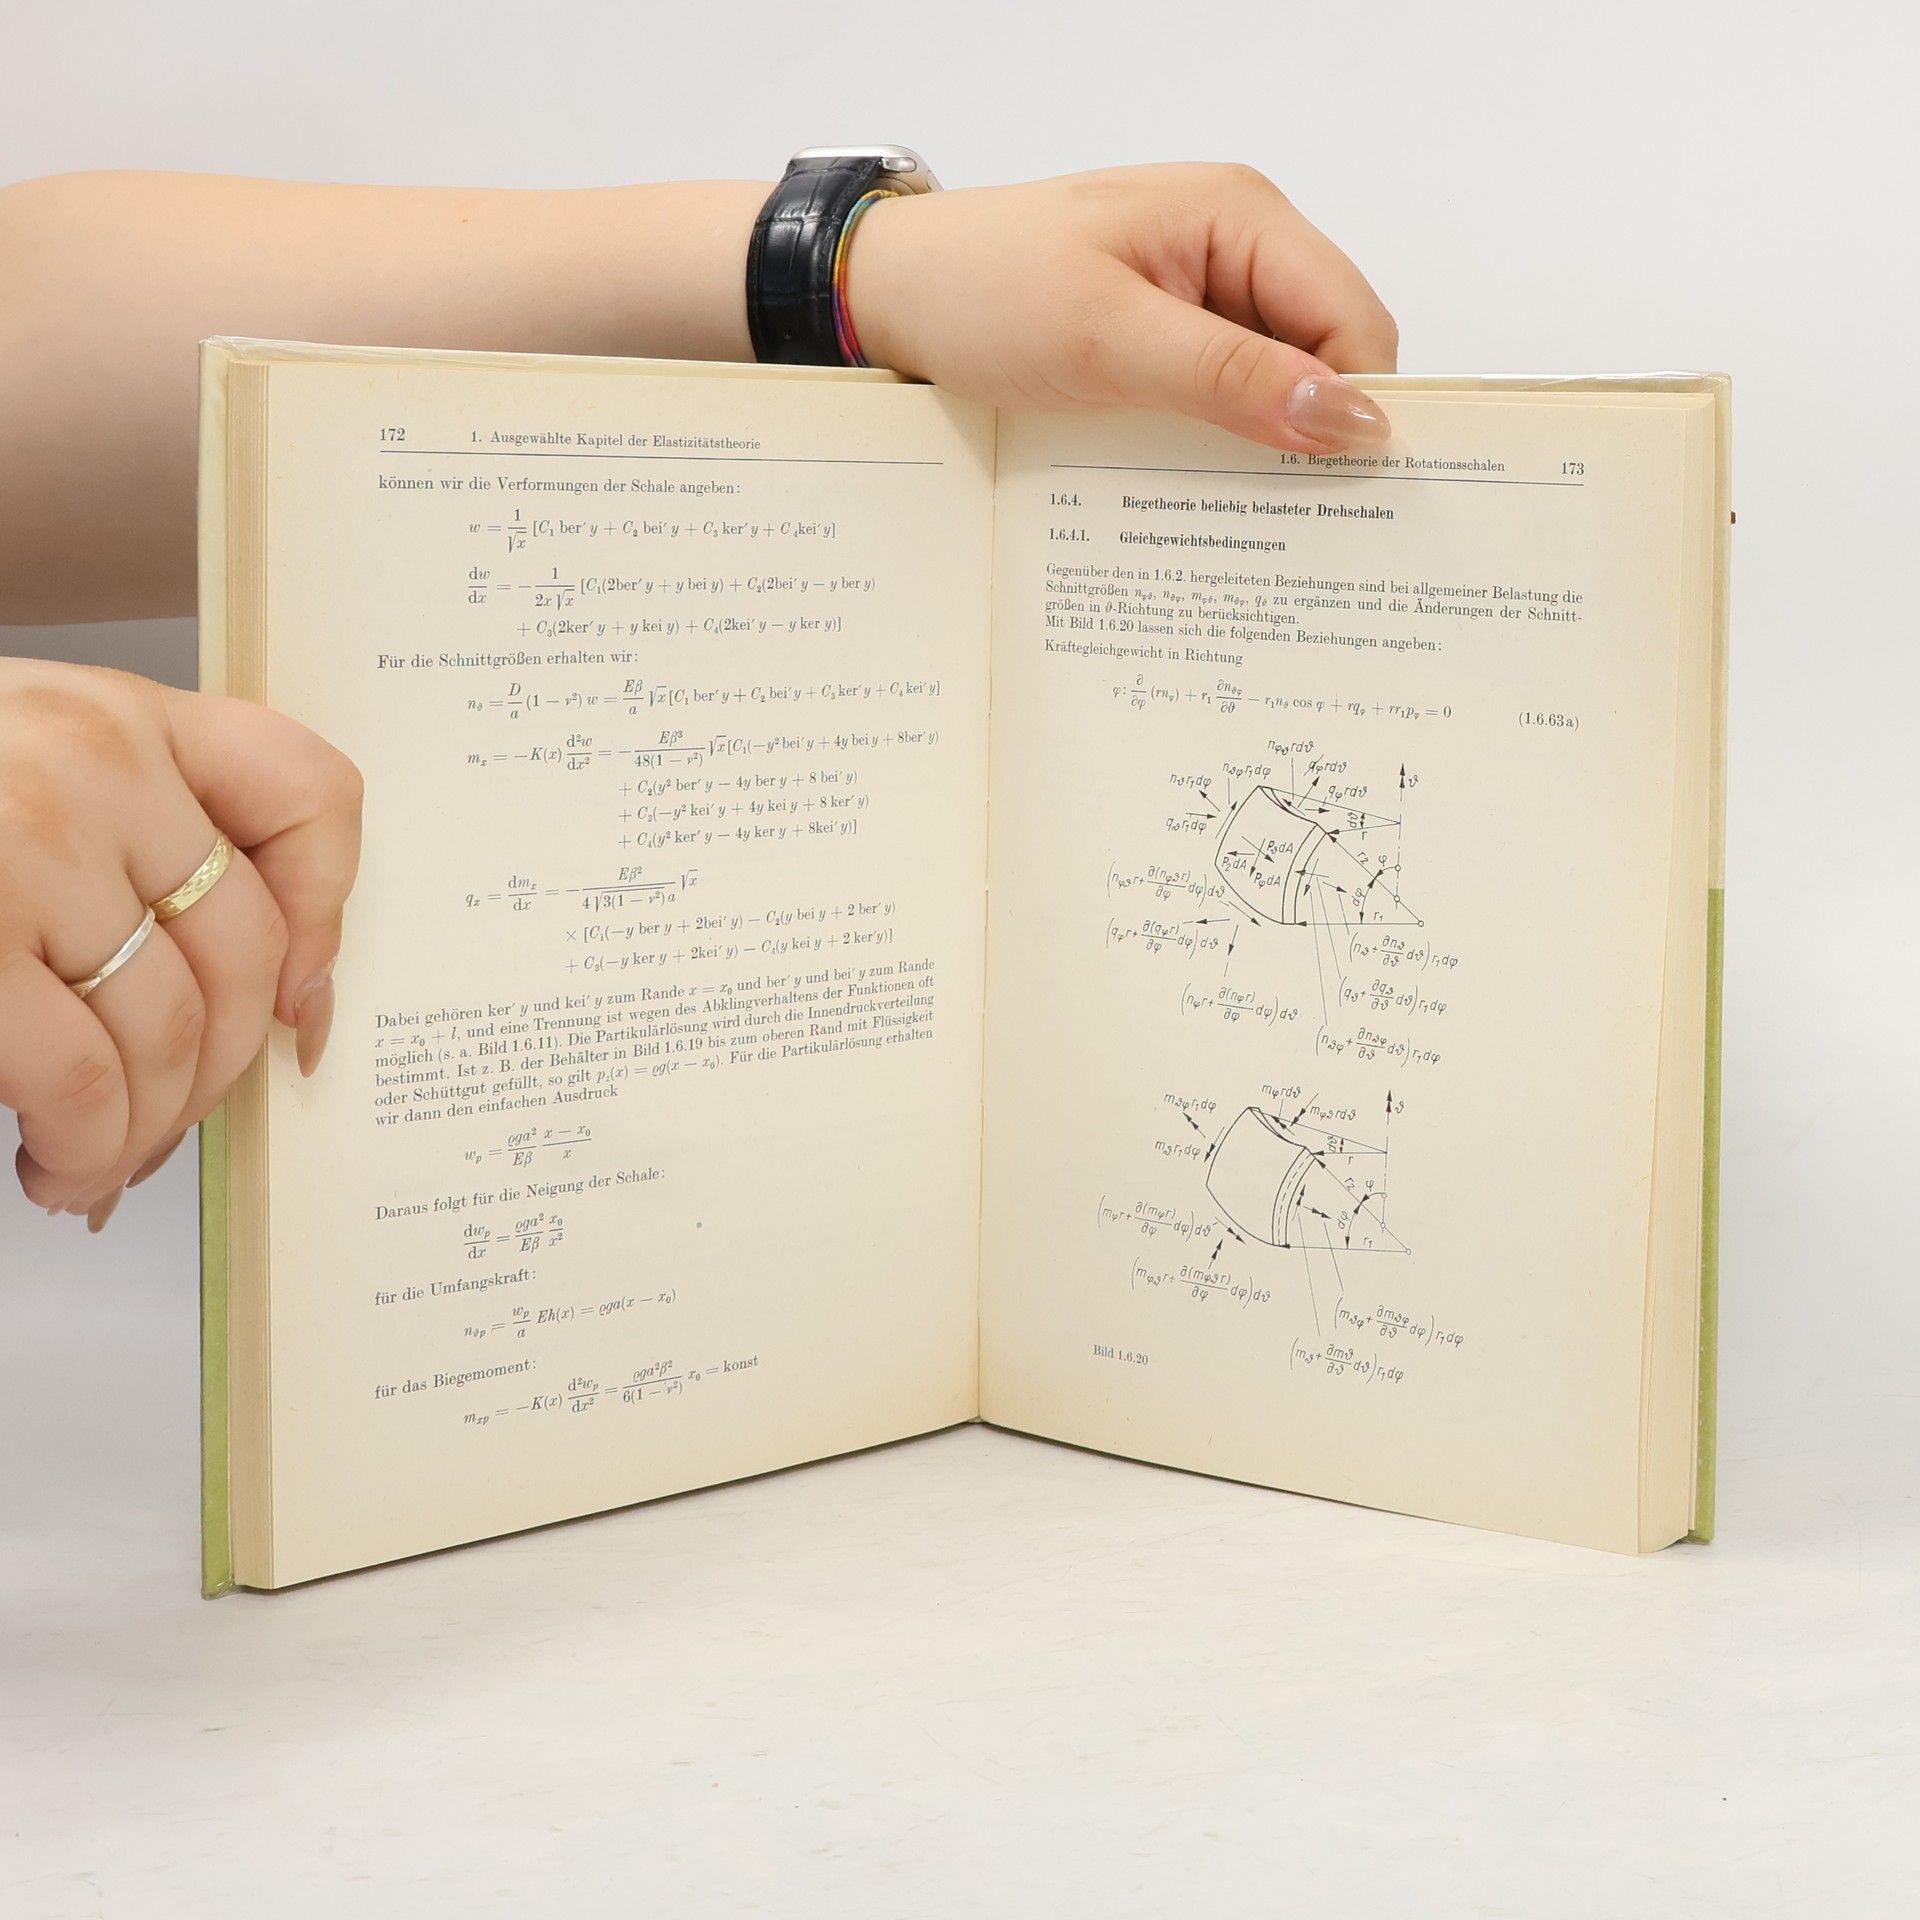 172 1. Ausgewählte Kapitel der Elastizitätstheorie
können wir die Verformungen der Schale angeben:
w = 1/√x [C₁ ber′ y + C₂ bei′ y + C₃ ker′ y + C₄kei′ y]
dw/dx = − 1/(2x √x) [C₁(2ber′ y + y bei y) + C₂(2bei′ y − y ber y)
+ C₃(2ker′ y + y kei y) + C₄(2kei′ y − y ker y)]
Für die Schnittgrößen erhalten wir:
n_ϑ = D/a (1 − ν²) w = Eβ/a √x [C₁ ber′ y + C₂ bei′ y + C₃ ker′ y + C₄ kei′ y]
m_x = −K(x) d²w/dx² = − Eβ³/(48(1 − ν²)) √x [C₁(−y² bei′ y + 4y bei y + 8ber′ y)
+ C₂(y² ber′ y − 4y ber y + 8 bei′ y)
+ C₃(−y² kei′ y + 4y kei y + 8 ker′ y)
+ C₄(y² ker′ y − 4y ker y + 8kei′ y)]
q_x = dm_x/dx = − Eβ²/(4 √(3(1 − ν²)) a) √x
× [C₁(−y ber y + 2bei′ y) − C₂(y bei y + 2 ber′ y)
+ C₃(−y ker y + 2kei′ y) − C₄(y kei y + 2 ker′y)]
Dabei gehören ker′ y und kei′ y zum Rande x = x₀ und ber′ y und bei′ y zum Rande
x = x₀ + l, und eine Trennung ist wegen des Abklingverhaltens der Funktionen oft
möglich (s. a. Bild 1.6.11). Die Partikulärlösung wird durch die Innendruckverteilung
bestimmt. Ist z. B. der Behälter in Bild 1.6.19 bis zum oberen Rand mit Flüssigkeit
oder Schüttgut gefüllt, so gilt p_z(x) = ϱg(x − x₀). Für die Partikulärlösung erhalten
wir dann den einfachen Ausdruck
w_p = ϱga²/Eβ (x − x₀)/x
Daraus folgt für die Neigung der Schale:
dw_p/dx = ϱga²/Eβ x₀/x²
für die Umfangskraft:
n_ϑp = w_p/a Eh(x) = ϱga(x − x₀)
für das Biegemoment:
m_xp = −K(x) d²w_p/dx² = ϱga²β²/(6(1 − ν²)) x₀ = konst
1.6. Biegetheorie der Rotationsschalen 173
1.6.4. Biegetheorie beliebig belasteter Drehschalen
1.6.4.1. Gleichgewichtsbedingungen
Gegenüber den in 1.6.2. hergeleiteten Beziehungen sind bei allgemeiner Belastung die
Schnittgrößen n_φϑ, n_ϑφ, m_φϑ, m_ϑφ, q_ϑ zu ergänzen und die Änderungen der Schnitt-
größen in ϑ-Richtung zu berücksichtigen.
Mit Bild 1.6.20 lassen sich die folgenden Beziehungen angeben:
Kräftegleichgewicht in Richtung
φ: ∂/∂φ (rn_φ) + r₁ ∂n_ϑφ/∂ϑ − r₁n_ϑ cos φ + rq_φ + rr₁p_φ = 0 (1.6.63a)
n_φϑ rdϑ
n_ϑφ r₁dφ
n_φ rdϑ
n_ϑ r₁dφ
q_φ rdϑ
ϑ
q_ϑ r₁dφ
dϑ
r
p_ϑ dA
p_z dA
p_φ dA
r₂
φ
dφ
r₁
(n_φϑ r + ∂(n_φϑ r)/∂φ dφ)dϑ
(q_φ r + ∂(q_φ r)/∂φ dφ)dϑ
(n_ϑ + ∂n_ϑ/∂ϑ dϑ) r₁dφ
(n_φ r + ∂(n_φ r)/∂φ dφ)dϑ
(q_ϑ + ∂q_ϑ/∂ϑ dϑ) r₁dφ
(n_ϑφ + ∂n_ϑφ/∂ϑ dϑ) r₁dφ
m_φ rdϑ
m_ϑφ r₁dφ
m_φϑ rdϑ
ϑ
m_ϑ r₁dφ
dϑ
r
r₂
φ
dφ
r₁
(m_φ r + ∂(m_φ r)/∂φ dφ)dϑ
(m_φϑ r + ∂(m_φϑ r)/∂φ dφ)dϑ
(m_ϑφ + ∂m_ϑφ/∂ϑ dφ) r₁dφ
(m_ϑ + ∂m_ϑ/∂ϑ dϑ) r₁dφ
Bild 1.6.20